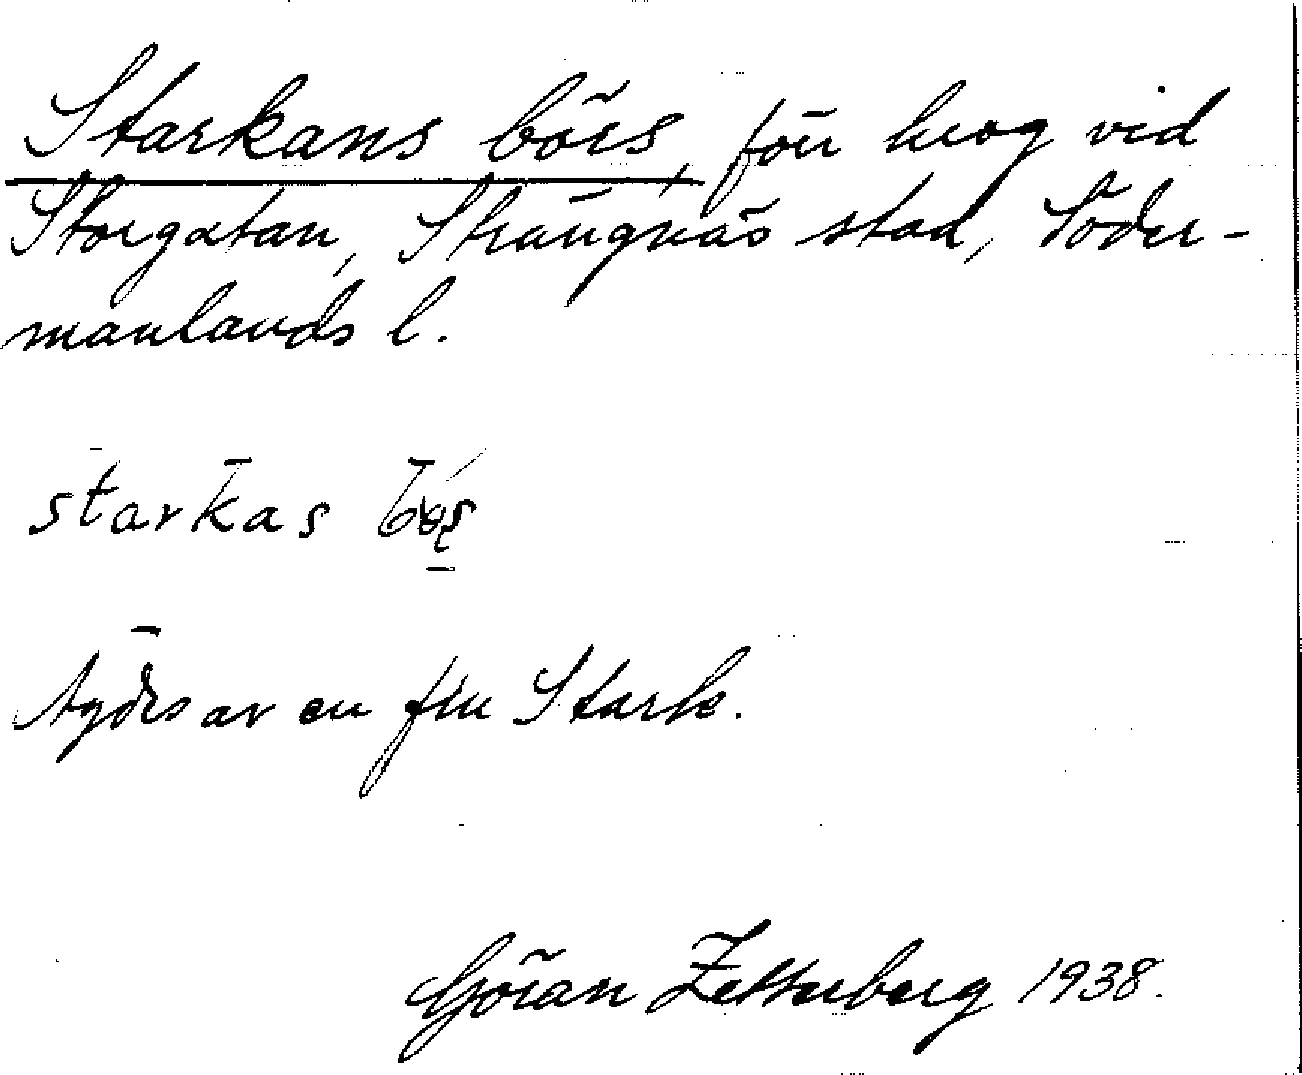 Starkans börs, förr krog vid
Storgatan, Strängnäs stad, Söder-
manlands l.
starkas
Ägdes av en fru Stark.
Göran Zetterberg 1938.